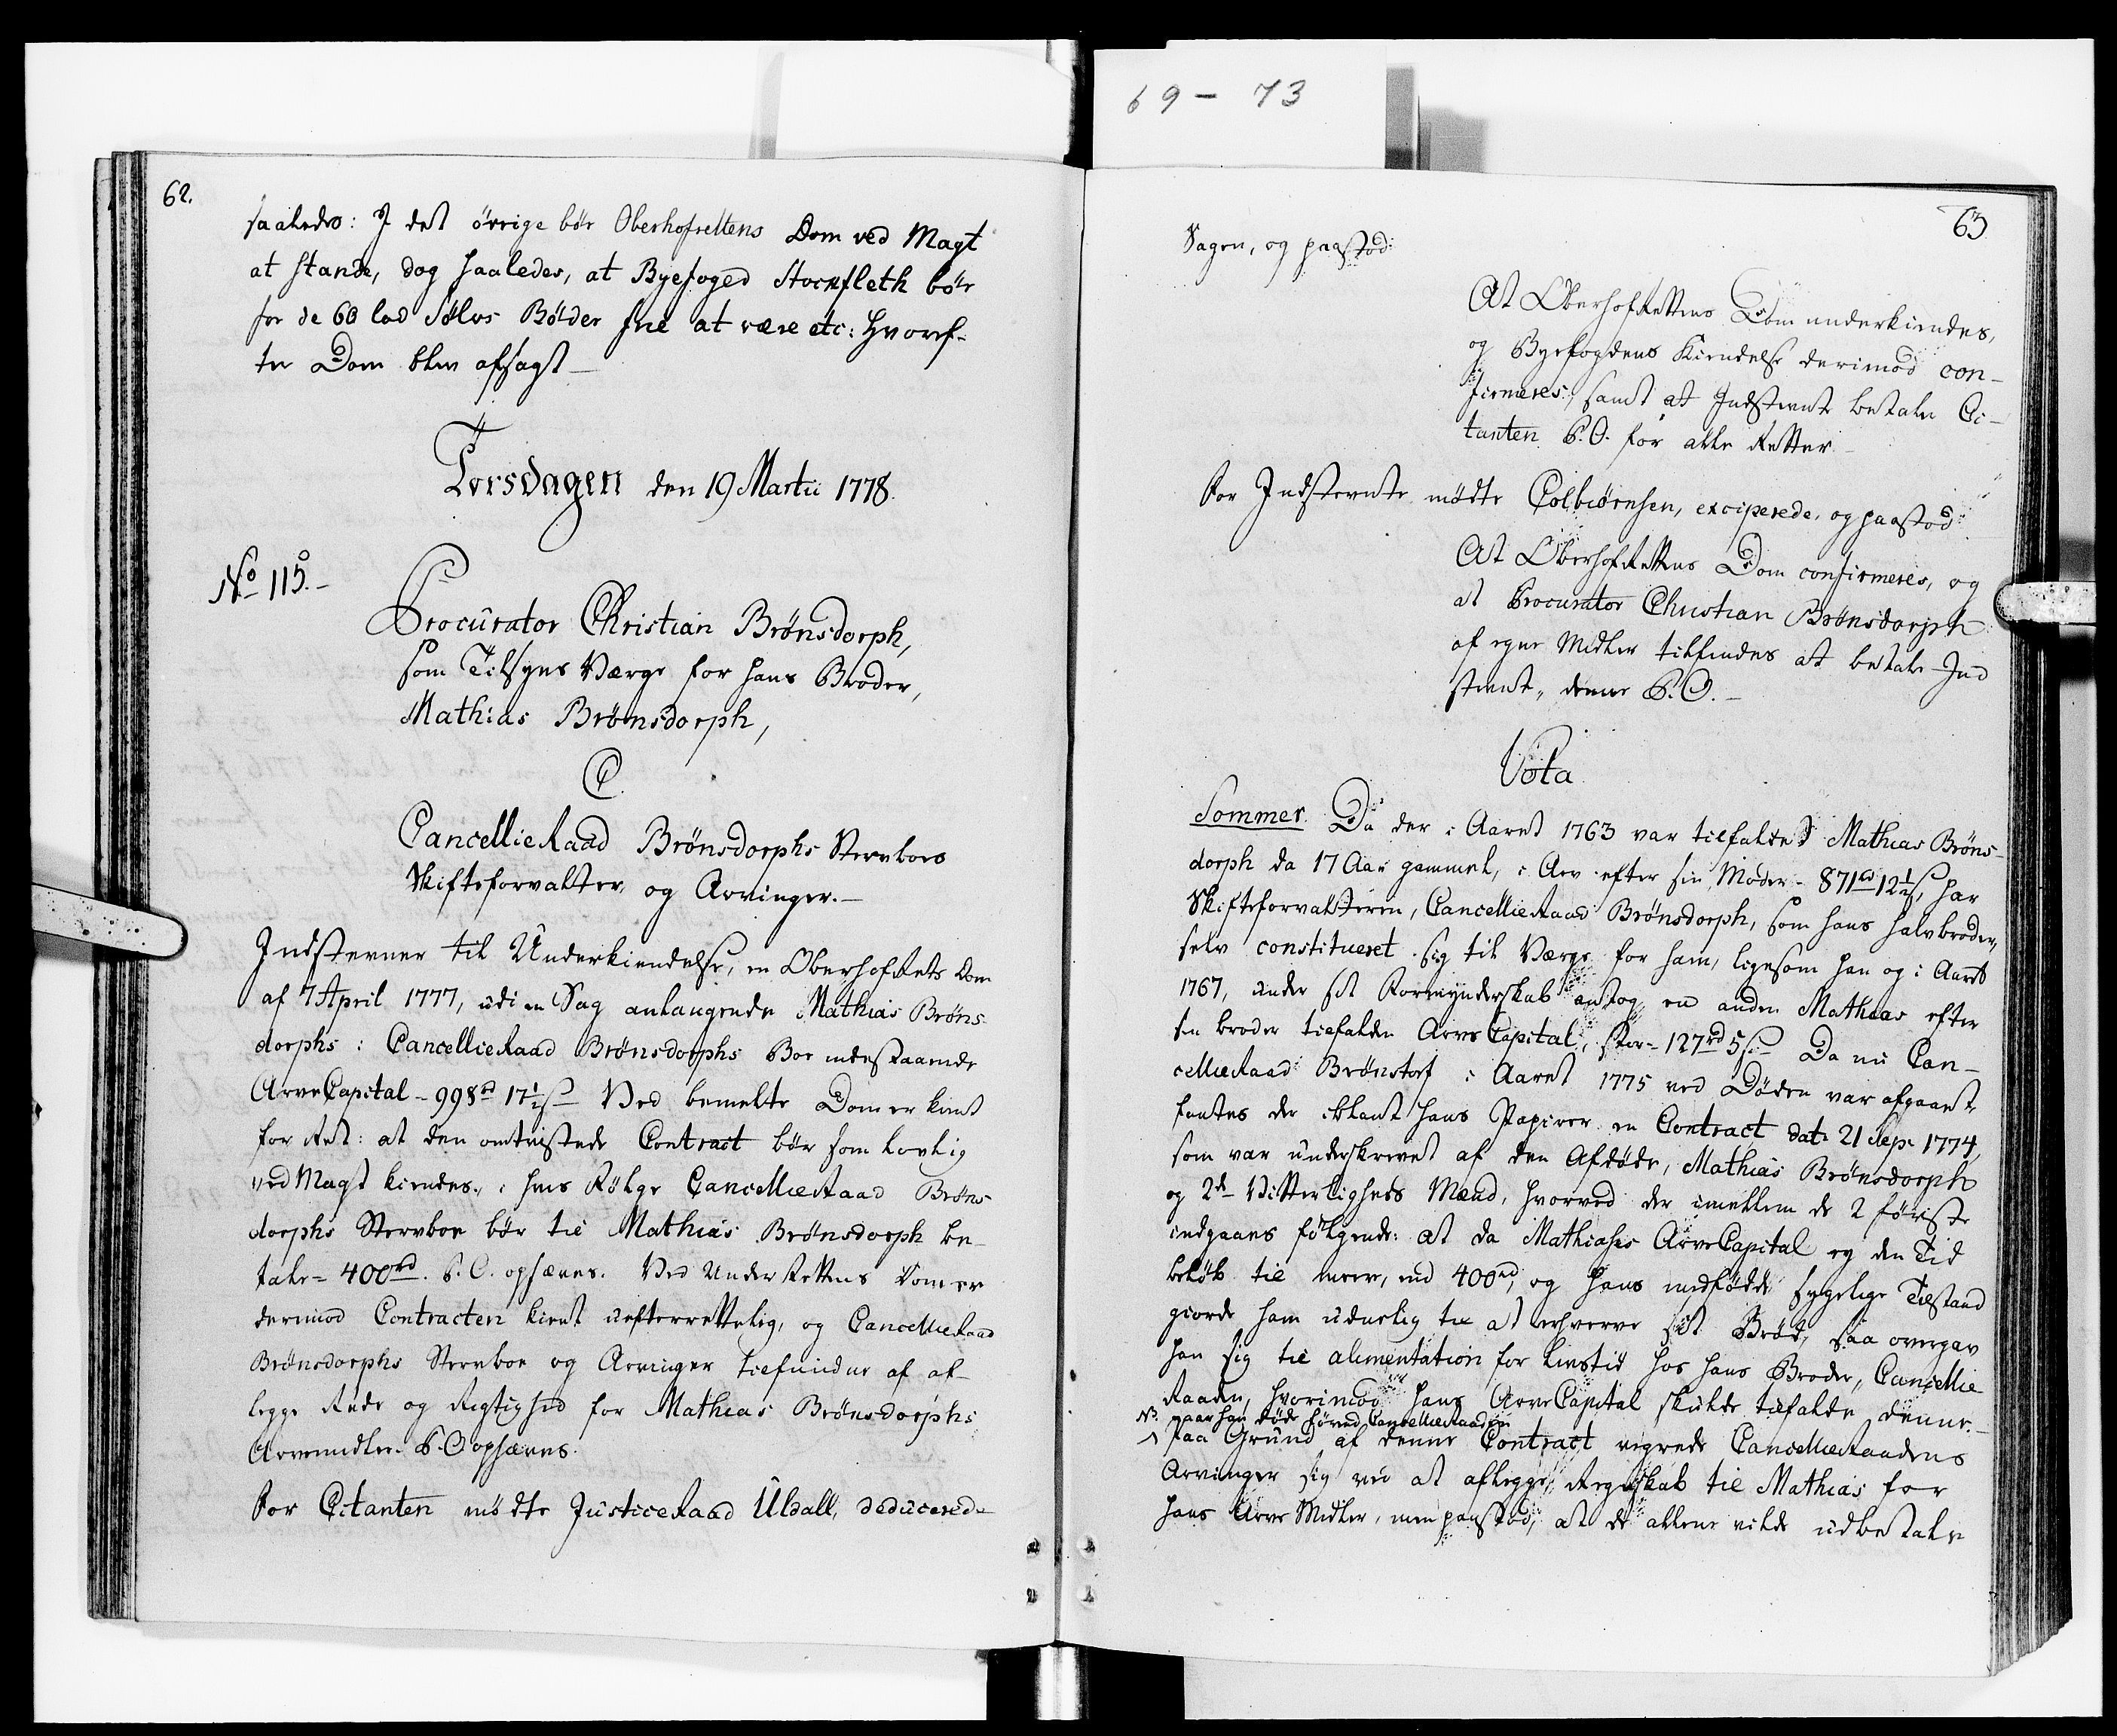 69 - 73
62.
saaledes: I det øvrige bør Oberhofrettens Dom ved Magt
at stande, dog saaledes, at Byefoged Stockfleth bør
for de 60 lod Sølvs Bøder frie at være etc: hvoref-
ter Dom blev afsagt
Torsdagen den 19 Martii 1778.
No 115.
Procurator Christian Brønsdorph,
som Tilsyns Værge for hans Broder,
Mathias Brønsdorph,
C.
CancellieRaad Brønsdorphs Stervboes
Skifteforvalter og Arvinger.
Indstevner til Underkiendelse, en OberhofRets Dom
af 7 April 1777, udi en Sag anlangende Mathias Brøns-
dorphs i CancellieRaad Brønsdorphs Boe indestaaende
ArveCapital - 998rd 17½ s Ved bemelte Dom er kient
for Ret: at den omtvistede Contract bør som lovlig
ved Magt kiendes, i hvis Følge CancellieRaad Brøns-
dorphs Sterrboe bør til Mathias Brønsdorph be-
tale = 400rd. P. O. ophæves. Ved UnderRettens Dom er
derimod Contracten kient uefterrettelig, og CancellieRaad
Brønsdorphs Sterrboe og Arvinger tilfunden at af-
legge Rede og Rigtighed for Mathias Brønsdorphs
Arvemidler. P. O ophæves.
For Citanten mødte JusticeRaad Uldall, deducerede
63
Sagen, og paastod:
At OberhofRettens Dom underkiendes,
og Byefogdens Kiendelse derimod con-
firmeres, samt at Indstevnte betaler Ci-
tanten P. O. for alle Retter.
For Indstevnte mødte Colbiørnsen, exciperede, og paastod:
At OberhofRettens Dom confirmeres, og
at Procurator Christian Brønsdorph
af egne Midler tilfindes at betale Ind
stevnte, denne P. O.
Vota
Sommer. Da der i Aaret 1763 var tilfaldet Mathias Brøns-
dorph da 17 Aar gammel, i Arv efter sin Moder - 871rd 12½ s, har
Skifteforvalteren, CancellieRaad Brønsdorph, som hans halvbroder,
selv constitueret sig til Værge for ham, ligesom han og i Aaret
1767, under sit Formynderskab antog en anden Mathias efter
sin broder tilfalden Arve Capital, stor - 127rd 5 s Da nu Can-
cellieRaad Brønstorf i Aaret 1775 ved Døden var afgaaet,
fantes der iblant hans Papirer en Contract dat: 21 Sep: 1774,
som var underskrevet af den Afdøde, Mathias Brønsdorph
og 2de Vitterligheds Mænd, hvorved der imellem de 2 første
indgaaes følgende: at da Mathiases ArveCapital ey den Tid
beløb til meere, end 400rd, og hans medfødde sygelige Tilstand
giorde ham uduelig til at erhverve sit Brød, saa overgav
han sig til alimentation for Livstid hos hans Broder, Cancellie
Raaden, hvorimod hans ArveCapital skulde tilfalde denne.
naar han døde før end CancellieRaaden
Paa Grund af denne Contract vegrede CancellieRaadens
Arvinger sig ved at aflegge Regnskab til Mathias for
hans Arve Midler, men paastod, at de allene vilde udbetale